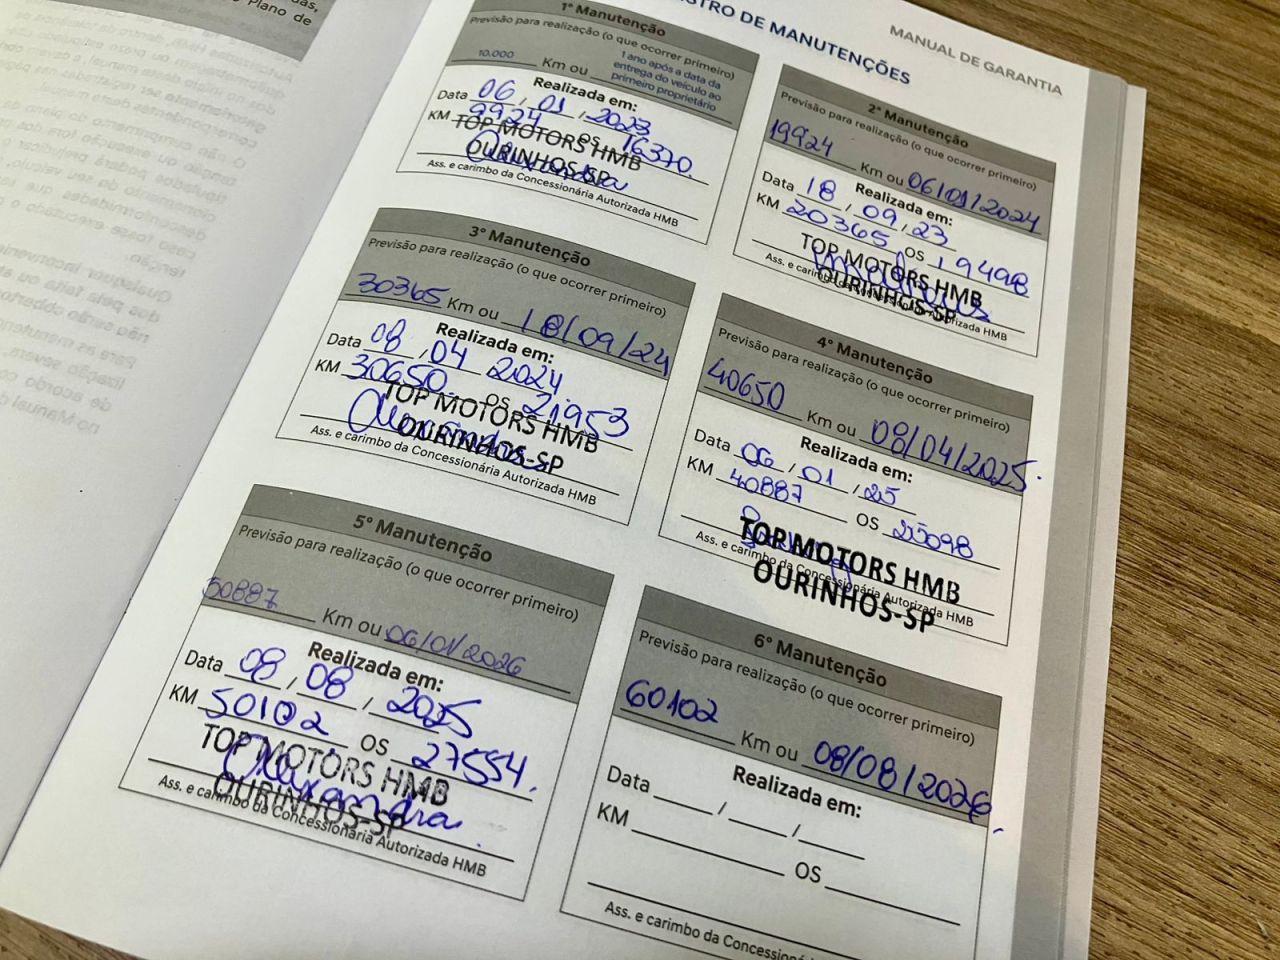 Plano de
MANUAL DE GARANTIA
DE MANUTENÇÕES
1ª Manutenção
Previsão para realização (o que ocorrer primeiro)
10.000 Km ou 1 ano após a data da
entrega do veículo ao
primeiro proprietário
Realizada em:
Data 06 / 01 / 2023
KM 9924 OS 16370
TOP MOTORS HMB
OURINHOS-SP
Ass. e carimbo da Concessionária Autorizada HMB
2ª Manutenção
Previsão para realização (o que ocorrer primeiro)
19924 Km ou 06/01/2024
Realizada em:
Data 18 / 09 / 23
KM 20365 OS 19498
TOP MOTORS HMB
OURINHOS-SP
Ass. e carimbo da Concessionária Autorizada HMB
3ª Manutenção
Previsão para realização (o que ocorrer primeiro)
30365 Km ou 18/09/24
Realizada em:
Data 08 / 04 / 2024
KM 30650 OS 21953
TOP MOTORS HMB
OURINHOS-SP
Ass. e carimbo da Concessionária Autorizada HMB
4ª Manutenção
Previsão para realização (o que ocorrer primeiro)
40650 Km ou 08/04/2025
Realizada em:
Data 06 / 01 / 25
KM 40887 OS 25098
TOP MOTORS HMB
OURINHOS-SP
Ass. e carimbo da Concessionária Autorizada HMB
5ª Manutenção
Previsão para realização (o que ocorrer primeiro)
50887 Km ou 06/01/2026
Realizada em:
Data 08 / 08 / 2025
KM 50102 OS 27554
TOP MOTORS HMB
OURINHOS-SP
Alexandra
Ass. e carimbo da Concessionária Autorizada HMB
6ª Manutenção
Previsão para realização (o que ocorrer primeiro)
60102 Km ou 08/08/2026
Realizada em:
Data / /
KM OS
Ass. e carimbo da Concessionária